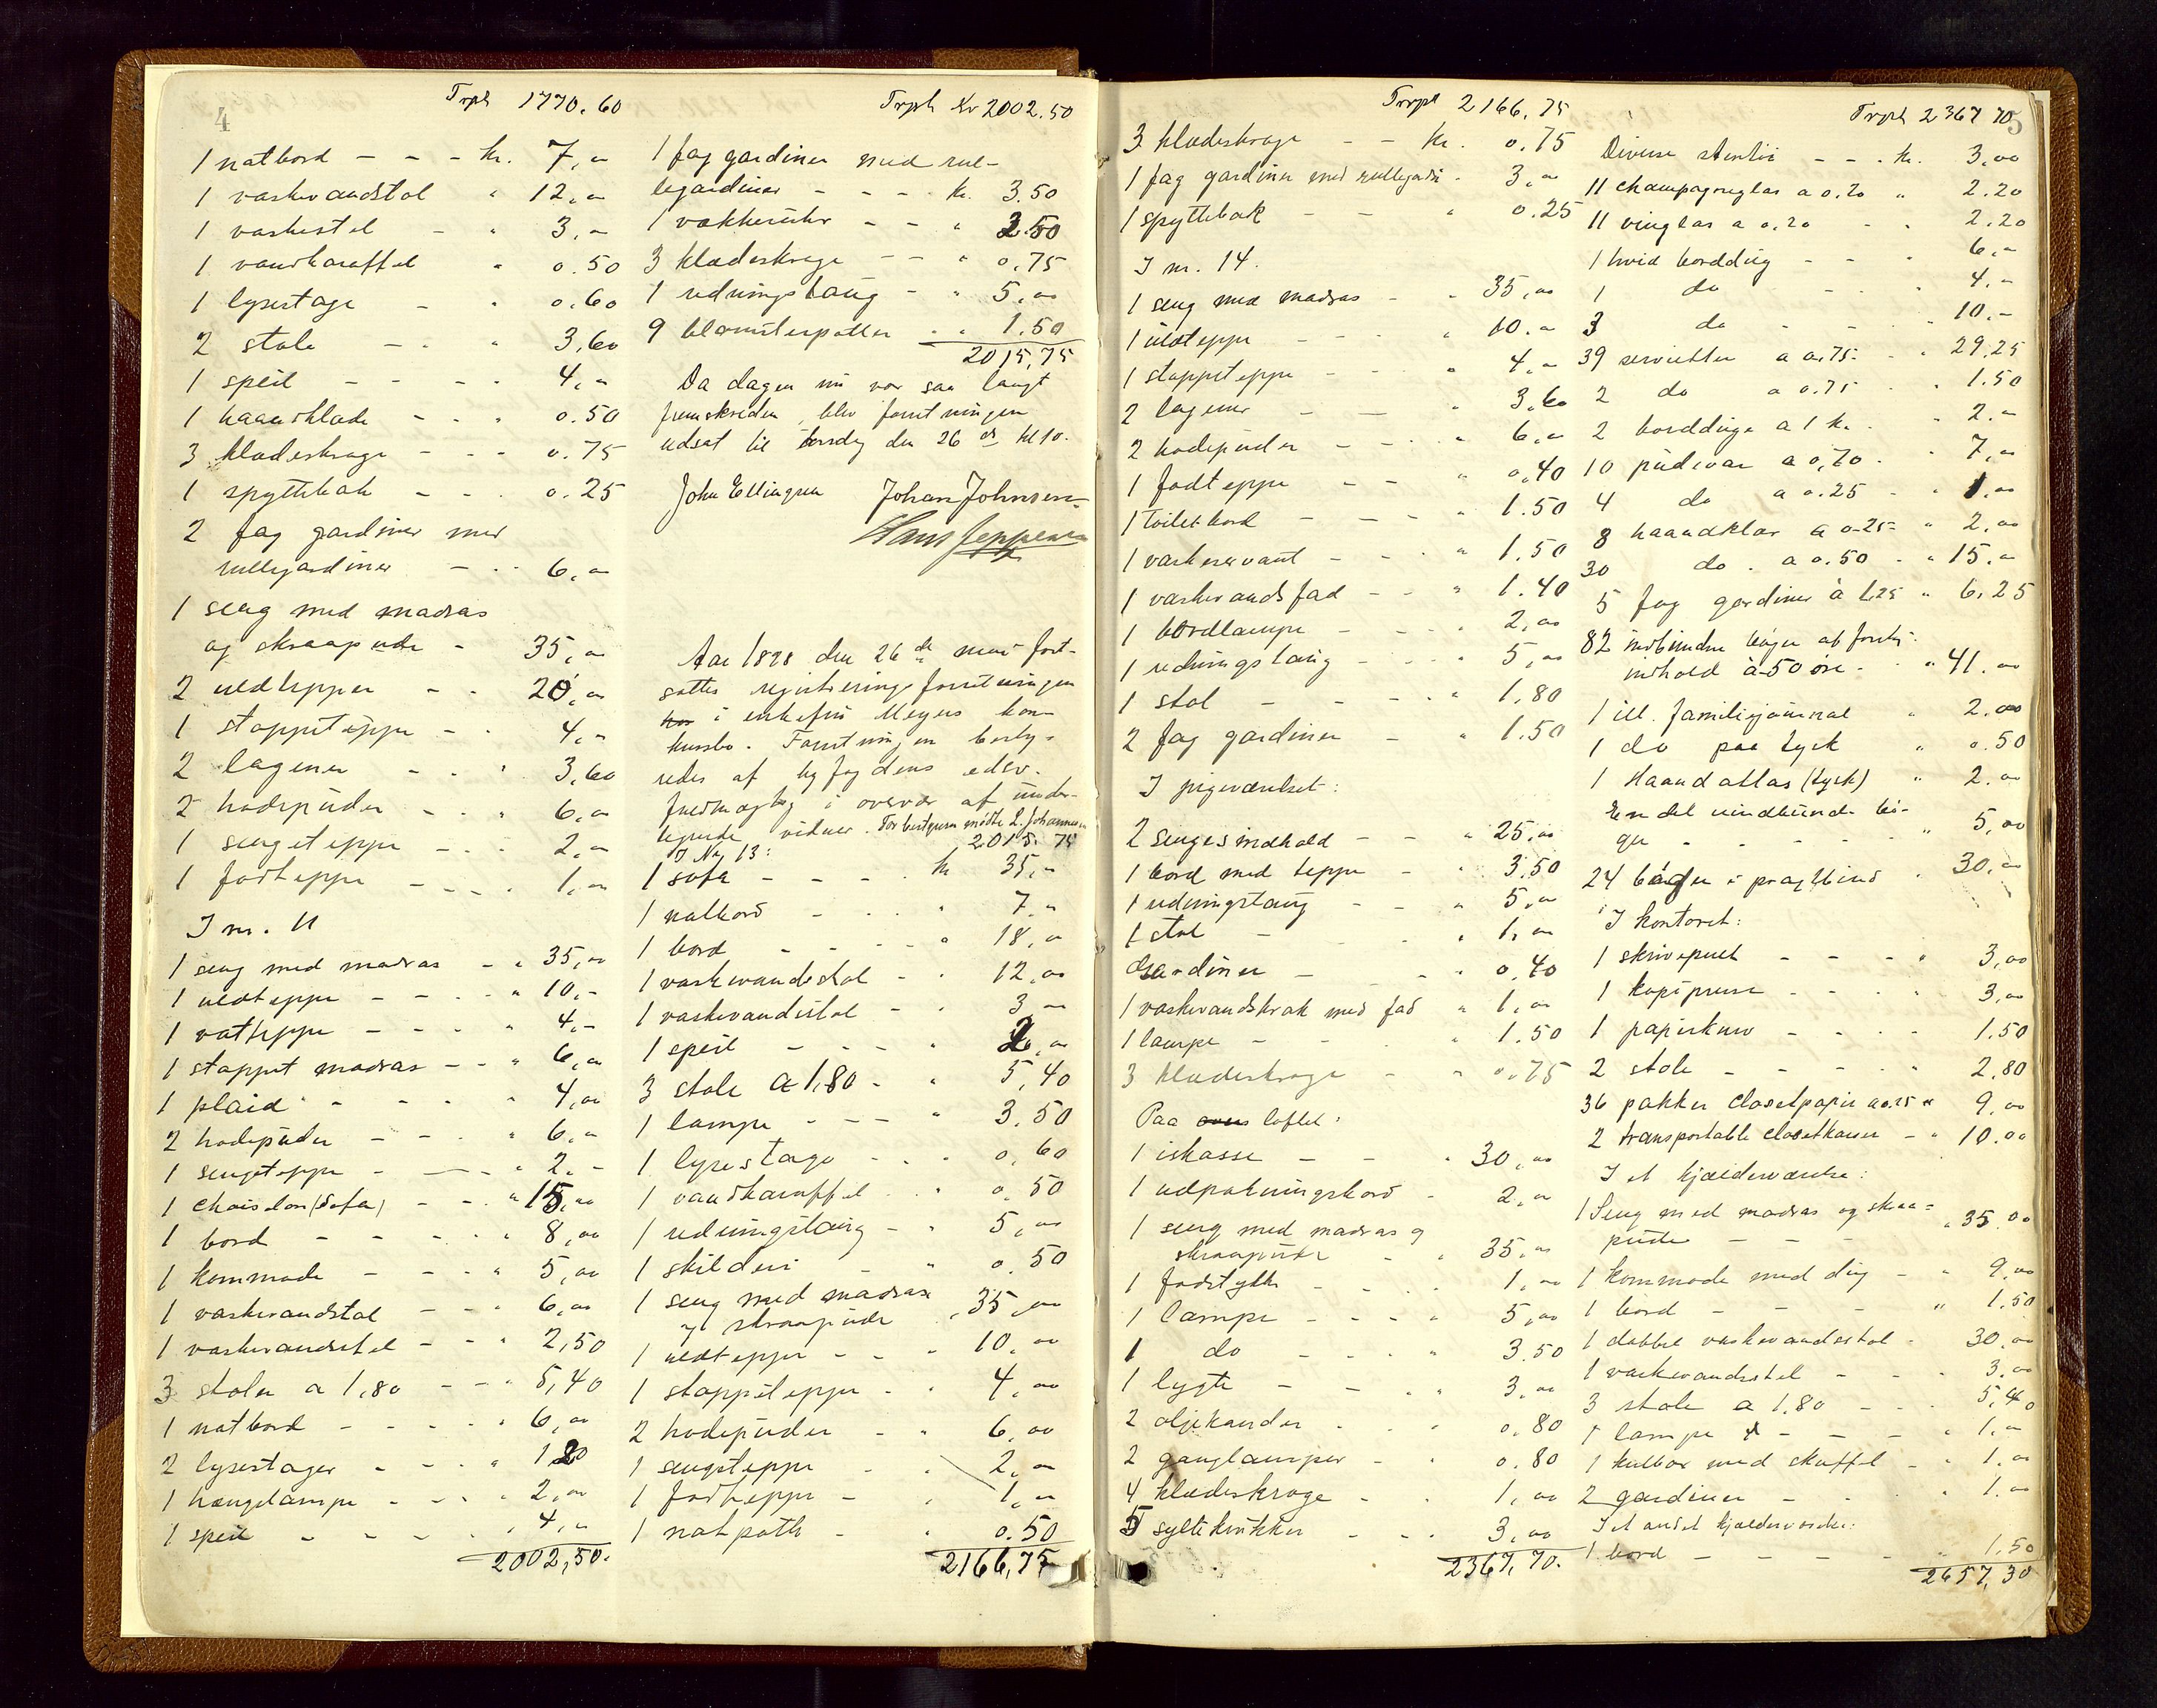 4
Trpt 1770.60
1 natbord - - - kr. 7,"
1 vaskevandstol " 12,"
1 vaskestel - " 3,"
1 vandkaraffel " 0.50
1 lysestage - " 0.60
2 stole - - " 3,60
1 speil - - - - 4,"
1 haandklæde - - " 0.50
3 klædeskroge - - - 0.75
1 spyttebak - - " 0.25
2 fag gardiner med
rullegardiner - - - 6,"
1 seng med madras
og skraapude - 35,"
2 uldtepper - - 20,"
1 stoppet teppe - - 4,"
2 lagener - - " 3,60
2 hodepuder - - " 6,"
1 sengeteppe - - - 2,"
1 fodteppe - - - - 1,"
I nr. 11
1 seng med madras - " 35,"
1 uldteppe - - - " 10,-
1 vatteppe - - - " 4,-
1 stoppet madras - - " 6,"
1 plaid - - - " 4,00
2 hodepuder - - - " 6,"
1 sengeteppe - - - " 2,-
1 chaiselon (Sofa) - - " 15,00
1 bord - - - - " 8,00
1 kommode - - - " 5,00
1 vaskevandstol - - " 6,00
1 vaskevandsstel - - " 2,50
3 stoler a 1,80 - - " 5,40
1 natbord - - - " 6,00
2 lysestager - - - " 1.20
1 hængelampe - - - " 2,00
1 speil - - - - , 4,"
2002,50.
Trpt Kr 2002.50
1 fag gardiner med rul-
legardiner - - - - kr. 3.50
1 vækkeruhr - - " 2.50
3 klædeskroge - - " 0.75
1 redningstaug - " 5,00
9 blomsterpotter - " 1.50
2015,75
Da dagen nu var saa langt
fremskreden, blev forretningen
udsat til torsdag den 26 ds kl 10.
John Ellingsen Johan Johnsen
Hans Jeppesen
Aar 1898 den 26de mai fort-
sattes registreringsforretningen
i enkefru Meyers kon-
kursbo. Forretningen besty-
redes af byfogdens edsv.
fuldmægtig i overvær af under-
tegnede vidner. For bestyreren mødte L. Johannesen
2015.75
I No 13:
1 sofa - - - - kr 35,"
1 natbord - - - " 7,"
1 bord - - - - " 18,"
1 vaskevandsstol - " 12,00
1 vaskevandsstel - " 3 "
1 speil - - - - " 2,00
3 stole a 1.80 - " 5,40
1 lampe - - - " 3.50
1 lysestage - - " 0,60
1 vandkaraffel - " 0.50
1 redningstaug - " 5,00
1 skilderi - " 0.50
1 seng med madras
og skraapude , 35,00
1 uldteppe - - - 10,00
1 stoppet teppe - - 4,00
2 hodepuder - " 6,00
1 sengeteppe - . 2,"
1 fodteppe - , 1,"
1 natpotte - " 0.50
2166,75
5
Trpt 2166.75
3 klædeskroge - - kr. 0.75
1 fag gardiner med rullegardi - 3,"
1 spyttebak - - " 0.25
I nr. 14.
1 seng med madras - " 35,00
1 uldteppe - - - " 10.00
1 stoppet teppe - - " 4,"
2 lagener - - " 3.60
2 hodepuder - - - " 6,"
1 fodteppe - - " 0,40
1 toiletbord - - - " 1.50
1 vaskeservant - - " 1.50
1 vaskevandsfad - - " 1.40
1 bordlampe - - - 2,00
1 redningstaug - - - " 5,00
1 stol - - - - " 1.80
2 fag gardiner - " 1.50
I pigeværelset:
2 sengesindhold - - " 25,00
1 bord med teppe - " 3.50
1 redningstaug - - " 5,"
1 stol - - - " 1,"
Gardiner - - " 0,40
1 vaskevandskrak med fad " 1,"
1 lampe - - - " 1.50
3 klædeskroge - - " 0.75
Paa loftet:
1 iskasse - - " 30,00
1 udpakningsbord - 2,"
1 seng med madras og
skraapude - " 35,"
1 fodstykke - - - - 1,"
1 lampe - - - - 5,00
1 do - - - " 3.50
1 lygte - - " " 3,00
2 oljekander - - " 0.80
2 ganglamper - " 0.80
4 klædeskroge - . 1,00
5 syltekrukker - - " 3,00
2367,70.
Trpt 2367 70
Diverse stentøi - - - kr. 3,00
11 champagneglas a 0.20 " 2.20
11 vinglas a 0.20 - " 2.20
1 hvid borddug - - " 6,-
1 do - - " 4,-
3 do - - " 10.-
39 servietter a 0.75 - " 29.25
2 do a 0.75 " 1.50
2 borddúge a 1 kr. - 2,"
10 pudevar a 0,70 - " 7,"
4 do a 0.25 - " 1,00
8 haandklær a 0.25 " 2,00
30 do. a 0.50 - " 15,"
5 fag gardiner à 1.25 " 6.25
82 indbundne bøger af forskj.
indhold à 50 øre - " 41.00
1 ill. familiejournal " 2.00
1 do paa tysk " 0.50
1 Haandatlas (tysk) " 2.00
En del uindbundne bø-
ger - - - " 5,00
24 bøger i pragtbind . 30,00
I kontoret:
1 skrivepult - - - " 3,00
1 kopipresse - - - " 3,00
1 papirkurv - - - - 1.50
2 stole - - - - - " 2,80
36 pakker closetpapir a 0.25 " 9,00
2 transportable closetkasser - " 10.00
I et kjælderværelse:
1 Seng med madras og skraa-
pude - - - " 35.00
1 kommode med dug - " 9,00
1 bord - - - " 1.50
1 dobbel vaskevandsstol - 30,00
1 vaskevandsstel - - - 3,00
3 stole a 1.80 - - " 5,40
1 lampe - - - " 1,"
1 kulbox med skuffel - " 1,00
2 gardiner - - " 1.00
I et andet kjælderværelse:
1 bord - - - - " 1.50
2657,30